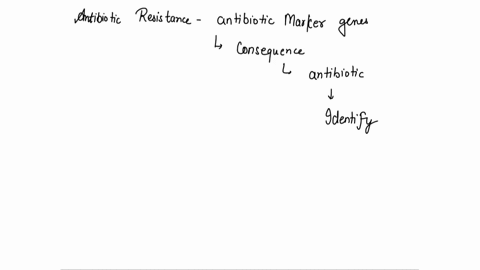 Antibiotic Resistance - antibiotic Marker genes
↳ Consequence
↳ antibiotic
↓
Identify